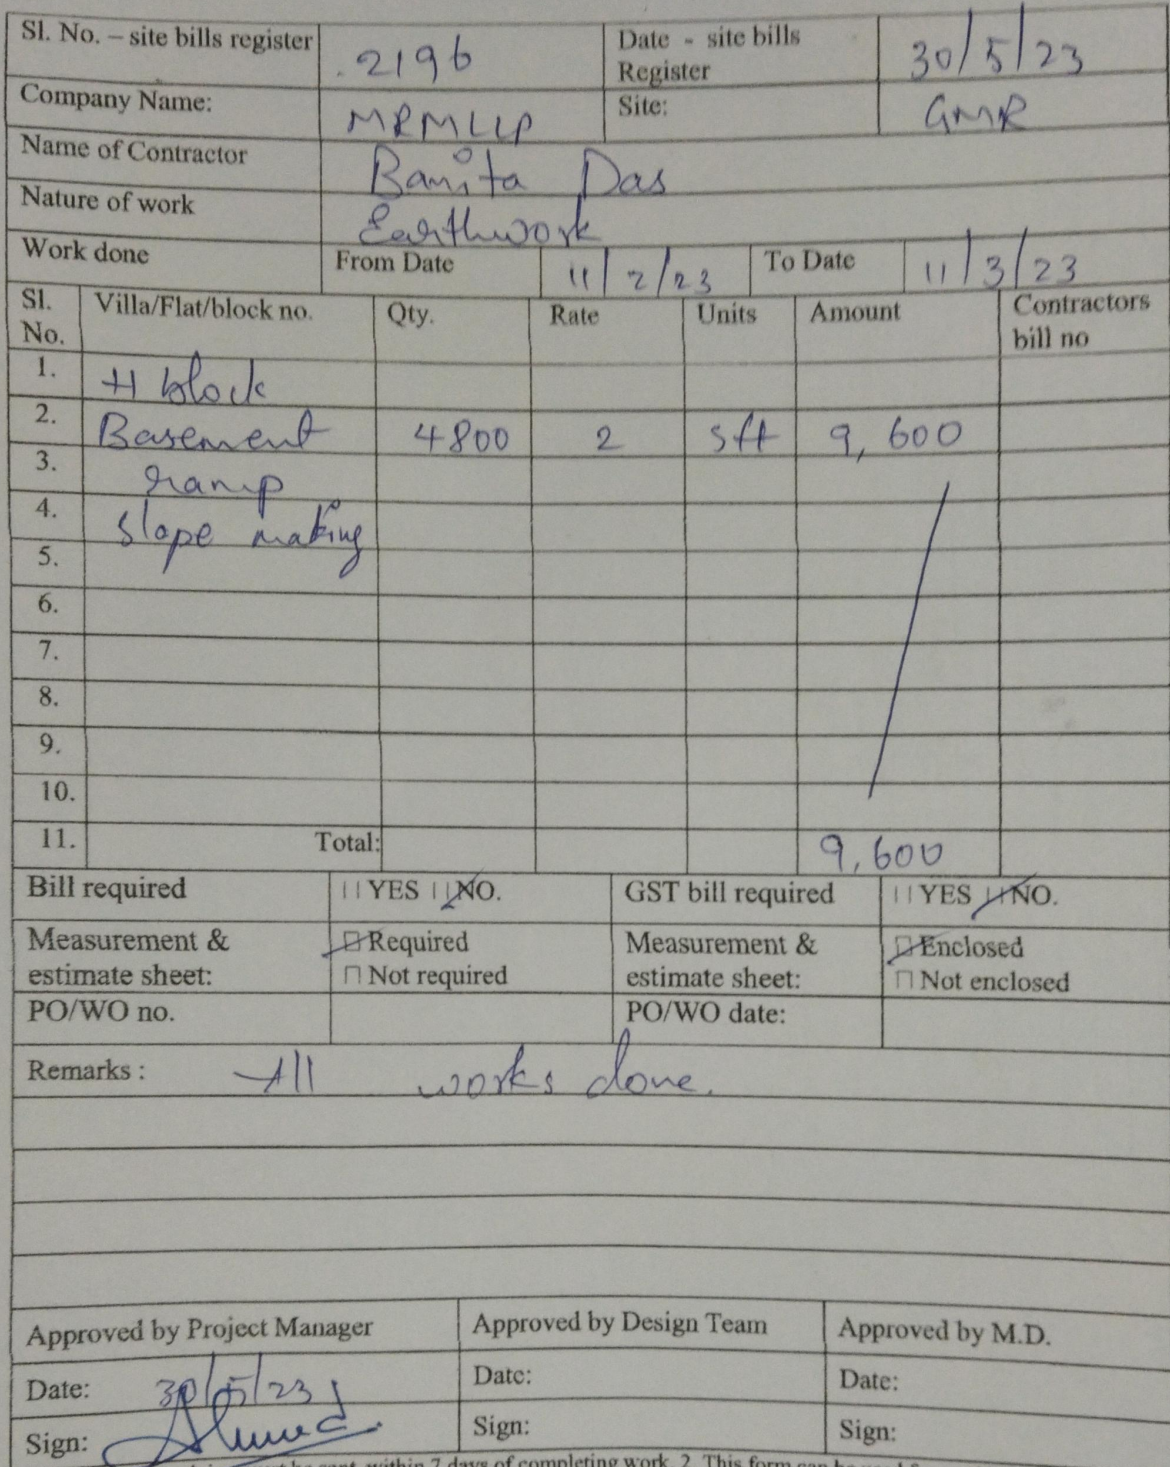 Sl. No. – site bills register .2196 Date - site bills Register 30/5/23
Company Name: MRMLLP Site: GMR
Name of Contractor Banita Das
Nature of work Earthwork
Work done From Date 11/2/23 To Date 11/3/23
Sl. No. Villa/Flat/block no. Qty. Rate Units Amount Contractors bill no
1. H block
2. Basement 4800 2 sft 9,600
3. ramp
4. slope making
5.
6.
7.
8.
9.
10.
11. Total: 9,600
Bill required YES NO. GST bill required YES NO.
Measurement & estimate sheet: Required Measurement & estimate sheet: Enclosed
Not required Not enclosed
PO/WO no. PO/WO date:
Remarks : All works done.
Approved by Project Manager Approved by Design Team Approved by M.D.
Date: 30/5/23 Date: Date:
Sign: Ahmed Sign: Sign:
within 7 days of completing work. 2. This form can be used